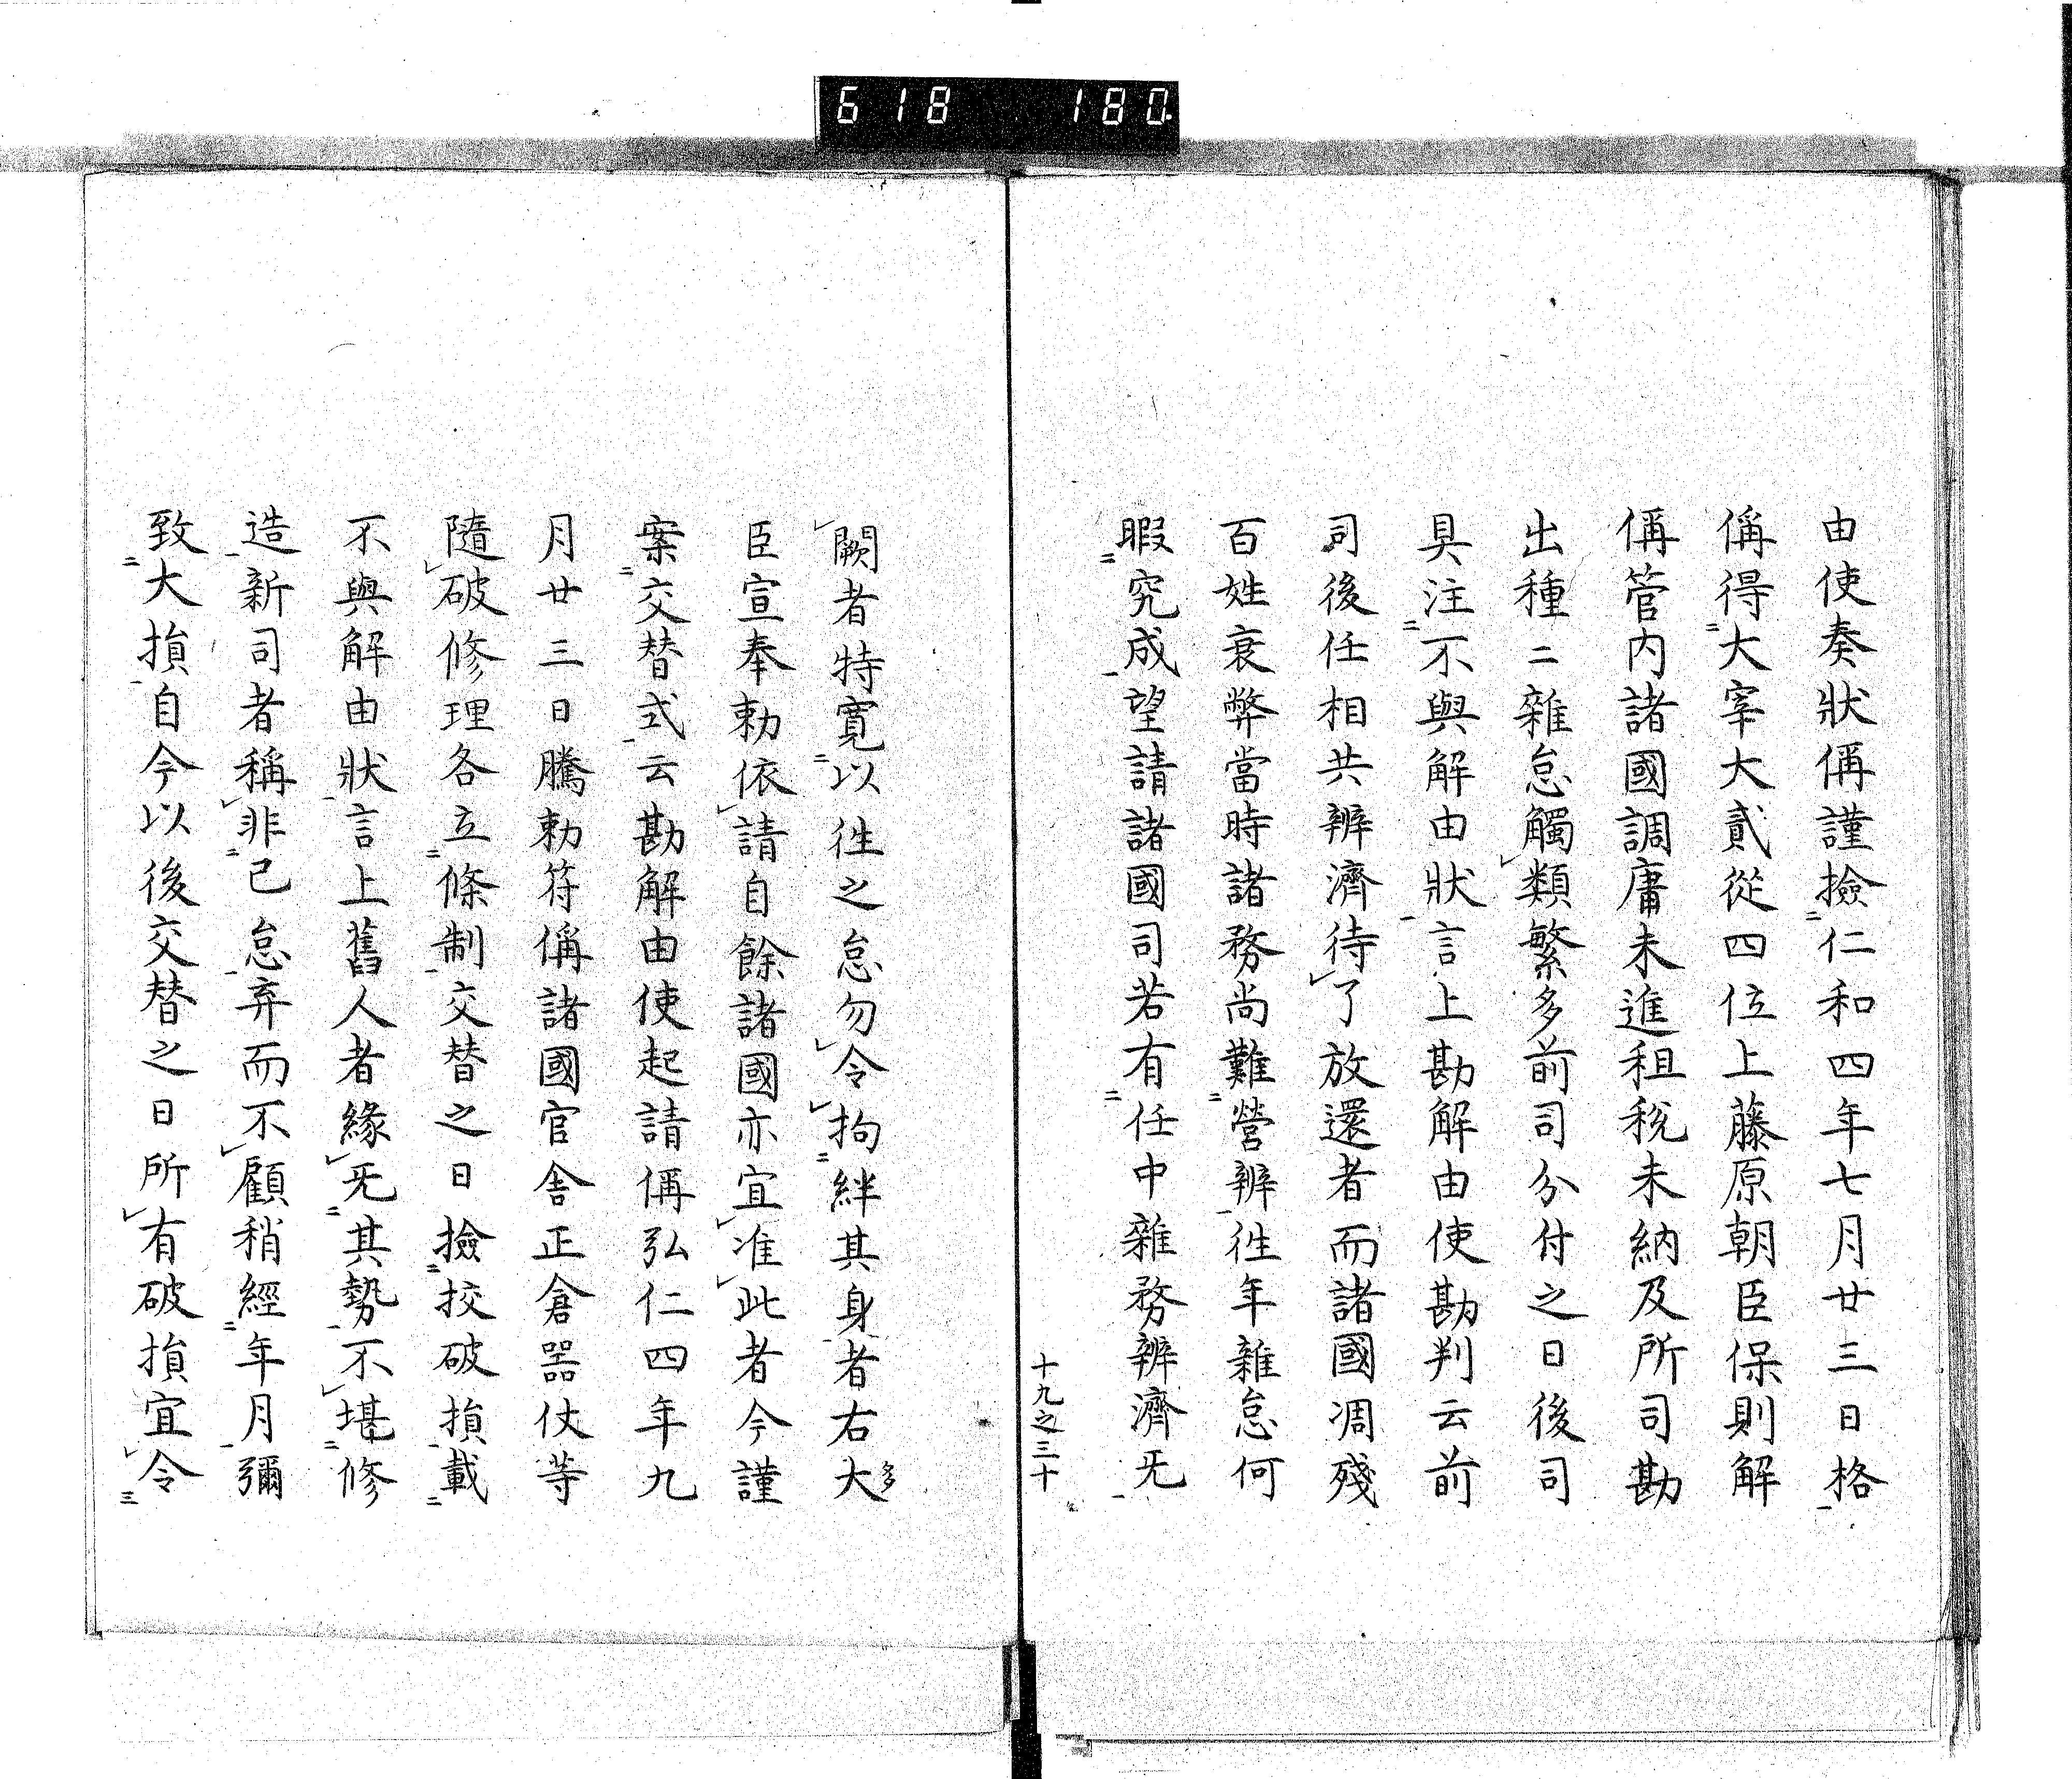 618 180
由使奏狀偁謹撿仁和四年七月廿三日格
偁得大宰大貳從四位上藤原朝臣保則解
偁管内諸國調庸未進租税未納及所司勘
出種々雜怠觸類繁多前司分付之日後司
具注不與解由狀言上勘解由使勘判云前
司後任相共辨濟待了放還者而諸國凋殘
百姓衰弊當時諸務尚難營辨徃年雜怠何
暇究成望請諸國司若有任中雜務辨濟旡
十九之三十
闕者特寛以徃之怠勿令拘絆其身者右大
臣宣奉勅依請自餘諸國亦宜准此者今謹
案交替式云勘解由使起請偁弘仁四年九
月廿三日騰勅符偁諸國官舎正倉噐仗等
隨破修理各立條制交替之日撿挍破損載
不與解由狀言上舊人者緣旡其勢不堪修
造新司者稱非已怠弃而不顧稍經年月彌
致大損自今以後交替之日所有破損宜令